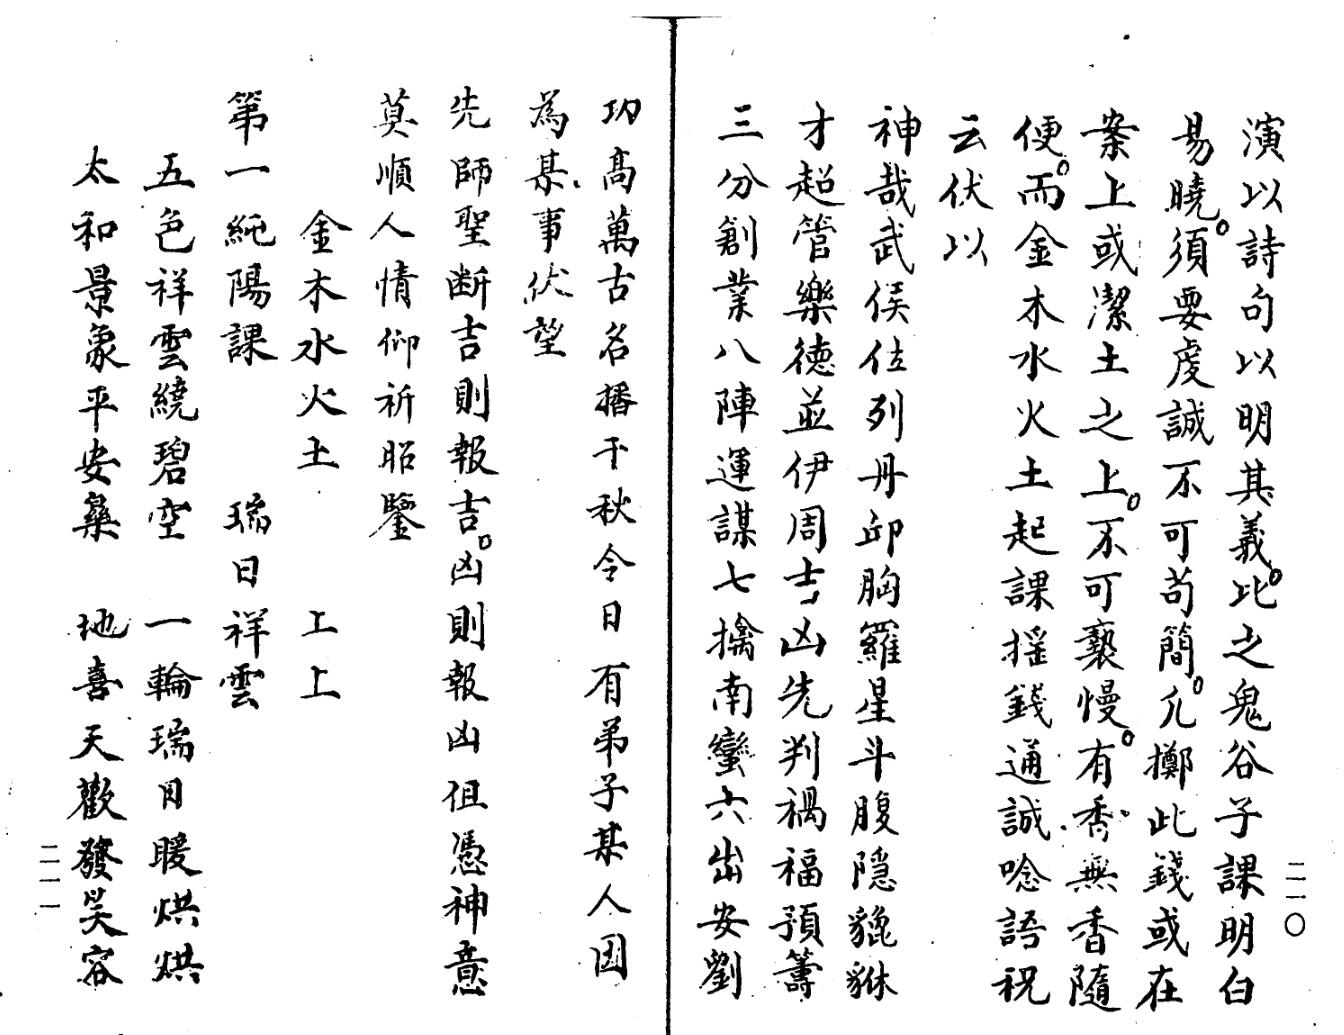 演以詩句以明其義。比之鬼谷子課明白
易曉。須要虔誠不可苟簡。凡擲此錢或在
案上或潔土之上。不可褻慢。有香無香隨
便。而金木水火土起課搖錢通誠唸語祝
云伏以
神哉武侯位列丹邱胸羅星斗腹隱貔貅
才超管樂德並伊周吉凶先判禍福預籌
三分創業八陣運謀七擒南蠻六出安劉
二一〇
功高萬古名播千秋今日有弟子某人因
為某事伏望
先師聖断吉則報吉。凶則報凶但憑神意
莫順人情仰祈昭鑒
金木水火土 上上
第一純陽課 瑞日祥雲
五色祥雲繞碧空 一輪瑞日暖烘烘
太和景象平安樂 地喜天歡發笑容
二一一